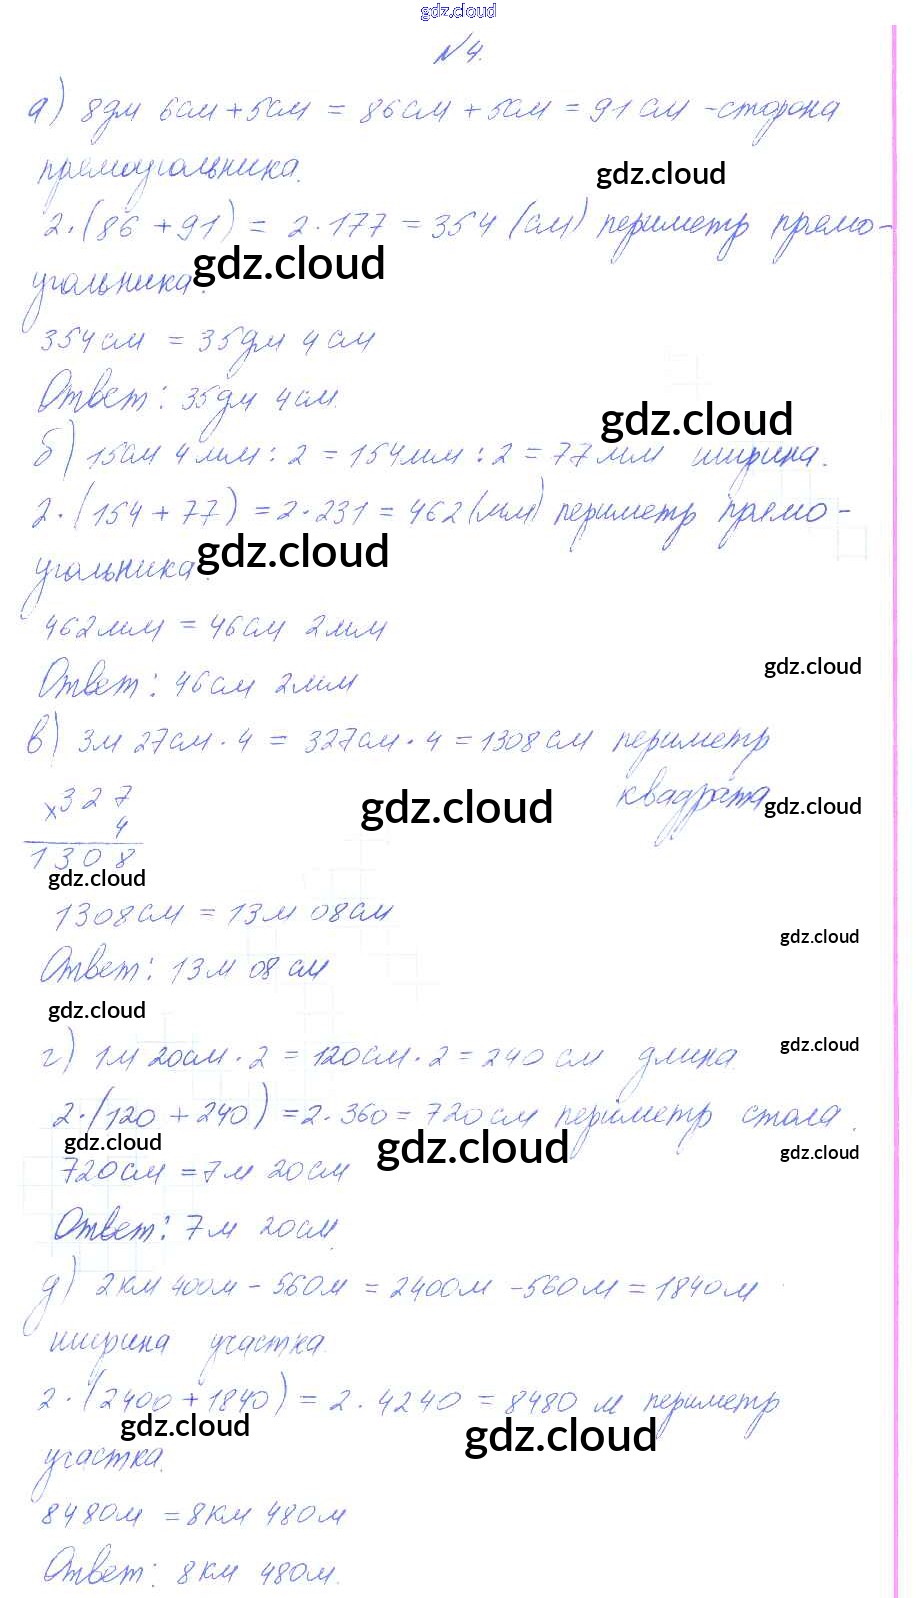 gdz.cloud
№4.
а) 8дм 6см + 5см = 86см + 5см = 91см - сторона
прямоугольника.
gdz.cloud
2·(86 + 91) = 2·177 = 354 (см) периметр прямо-
gdz.cloud
угольника.
354см = 35дм 4см
Ответ: 35дм 4см.
gdz.cloud
б) 15см 4мм : 2 = 154мм : 2 = 77мм ширина.
2·(154 + 77) = 2·231 = 462 (мм) периметр прямо-
gdz.cloud
угольника.
462мм = 46см 2мм
gdz.cloud
Ответ: 46см 2мм
в) 3м 27см · 4 = 327см · 4 = 1308см периметр
квадрата
gdz.cloud
gdz.cloud
×327
4
1308
gdz.cloud
1308см = 13м 08см
gdz.cloud
Ответ: 13м 08см
gdz.cloud
г) 1м 20см · 2 = 120см · 2 = 240см длина.
gdz.cloud
2·(120 + 240) = 2·360 = 720см периметр стола.
gdz.cloud
gdz.cloud
gdz.cloud
720см = 7м 20см
Ответ: 7м 20см.
д) 2км 400м - 560м = 2400м - 560м = 1840м
ширина участка.
2·(2400 + 1840) = 2·4240 = 8480 м периметр
gdz.cloud
gdz.cloud
участка.
8480м = 8км 480м
Ответ: 8км 480м.